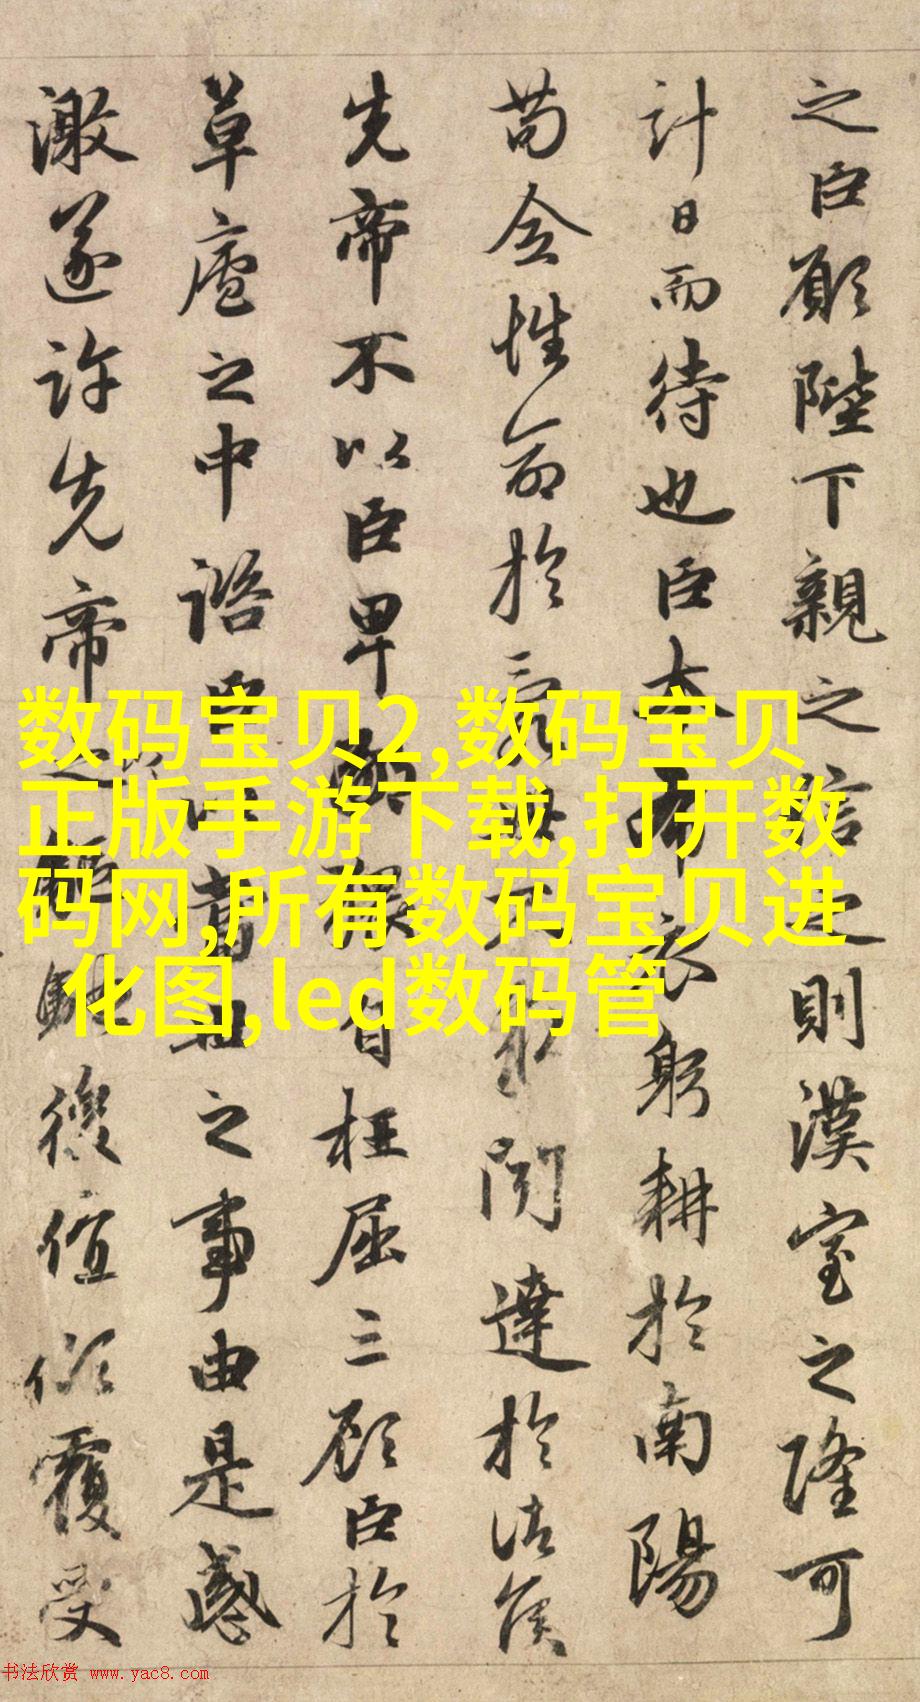 之臣願陛下親之信之則漢室之隆可
計日而待也臣本布衣躬耕於南陽
苟全性命於亂世不求聞達於諸侯
先帝不以臣卑鄙猥自枉屈三顧臣於
草廬之中諮臣以當世之事由是感
激遂許先帝以驅馳後值傾覆受
数码宝贝2,数码宝贝
正版手游下载,打开数
码网,所有数码宝贝进
化图,led数码管
书法欣赏 www.yac8.com